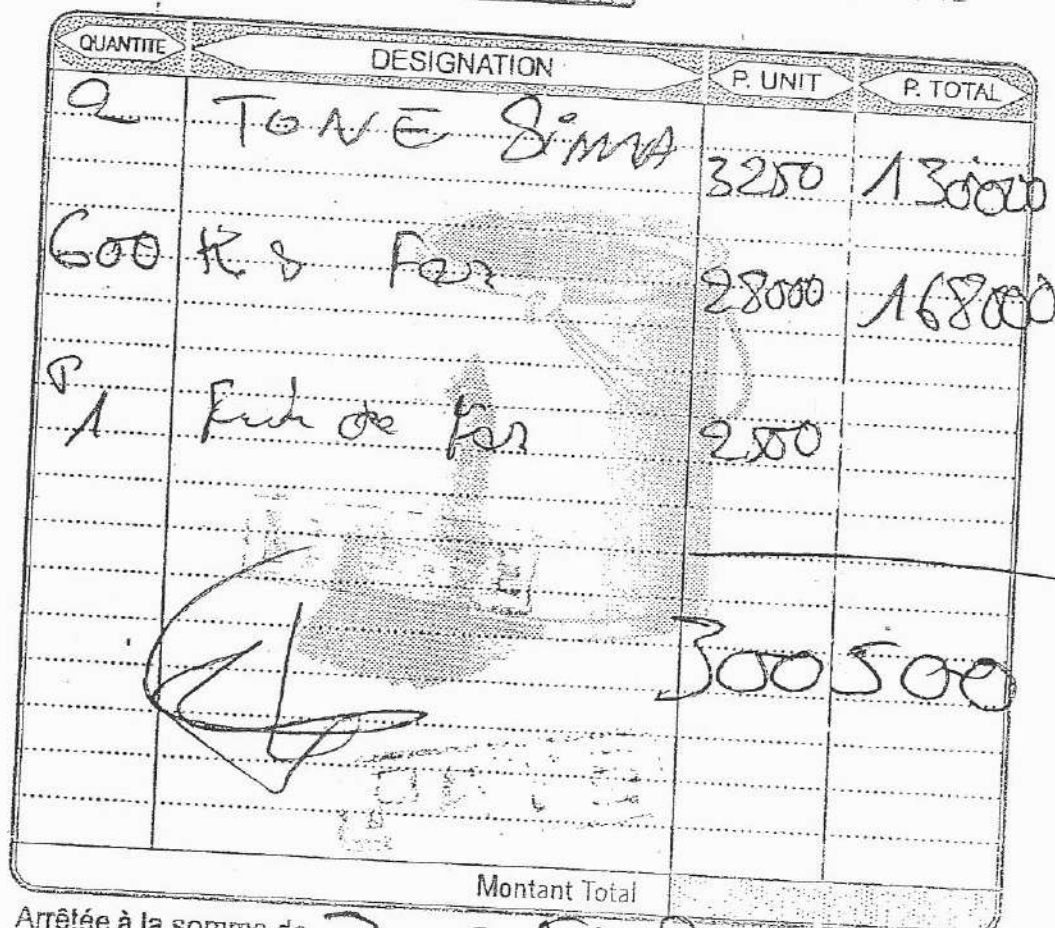 QUANTITE DESIGNATION P. UNIT P. TOTAL
2 TONE 3250 130000
600 K g Far 28000 168000
1 de Far 2500
300 500
Montant Total
Arrêtée à la somme de